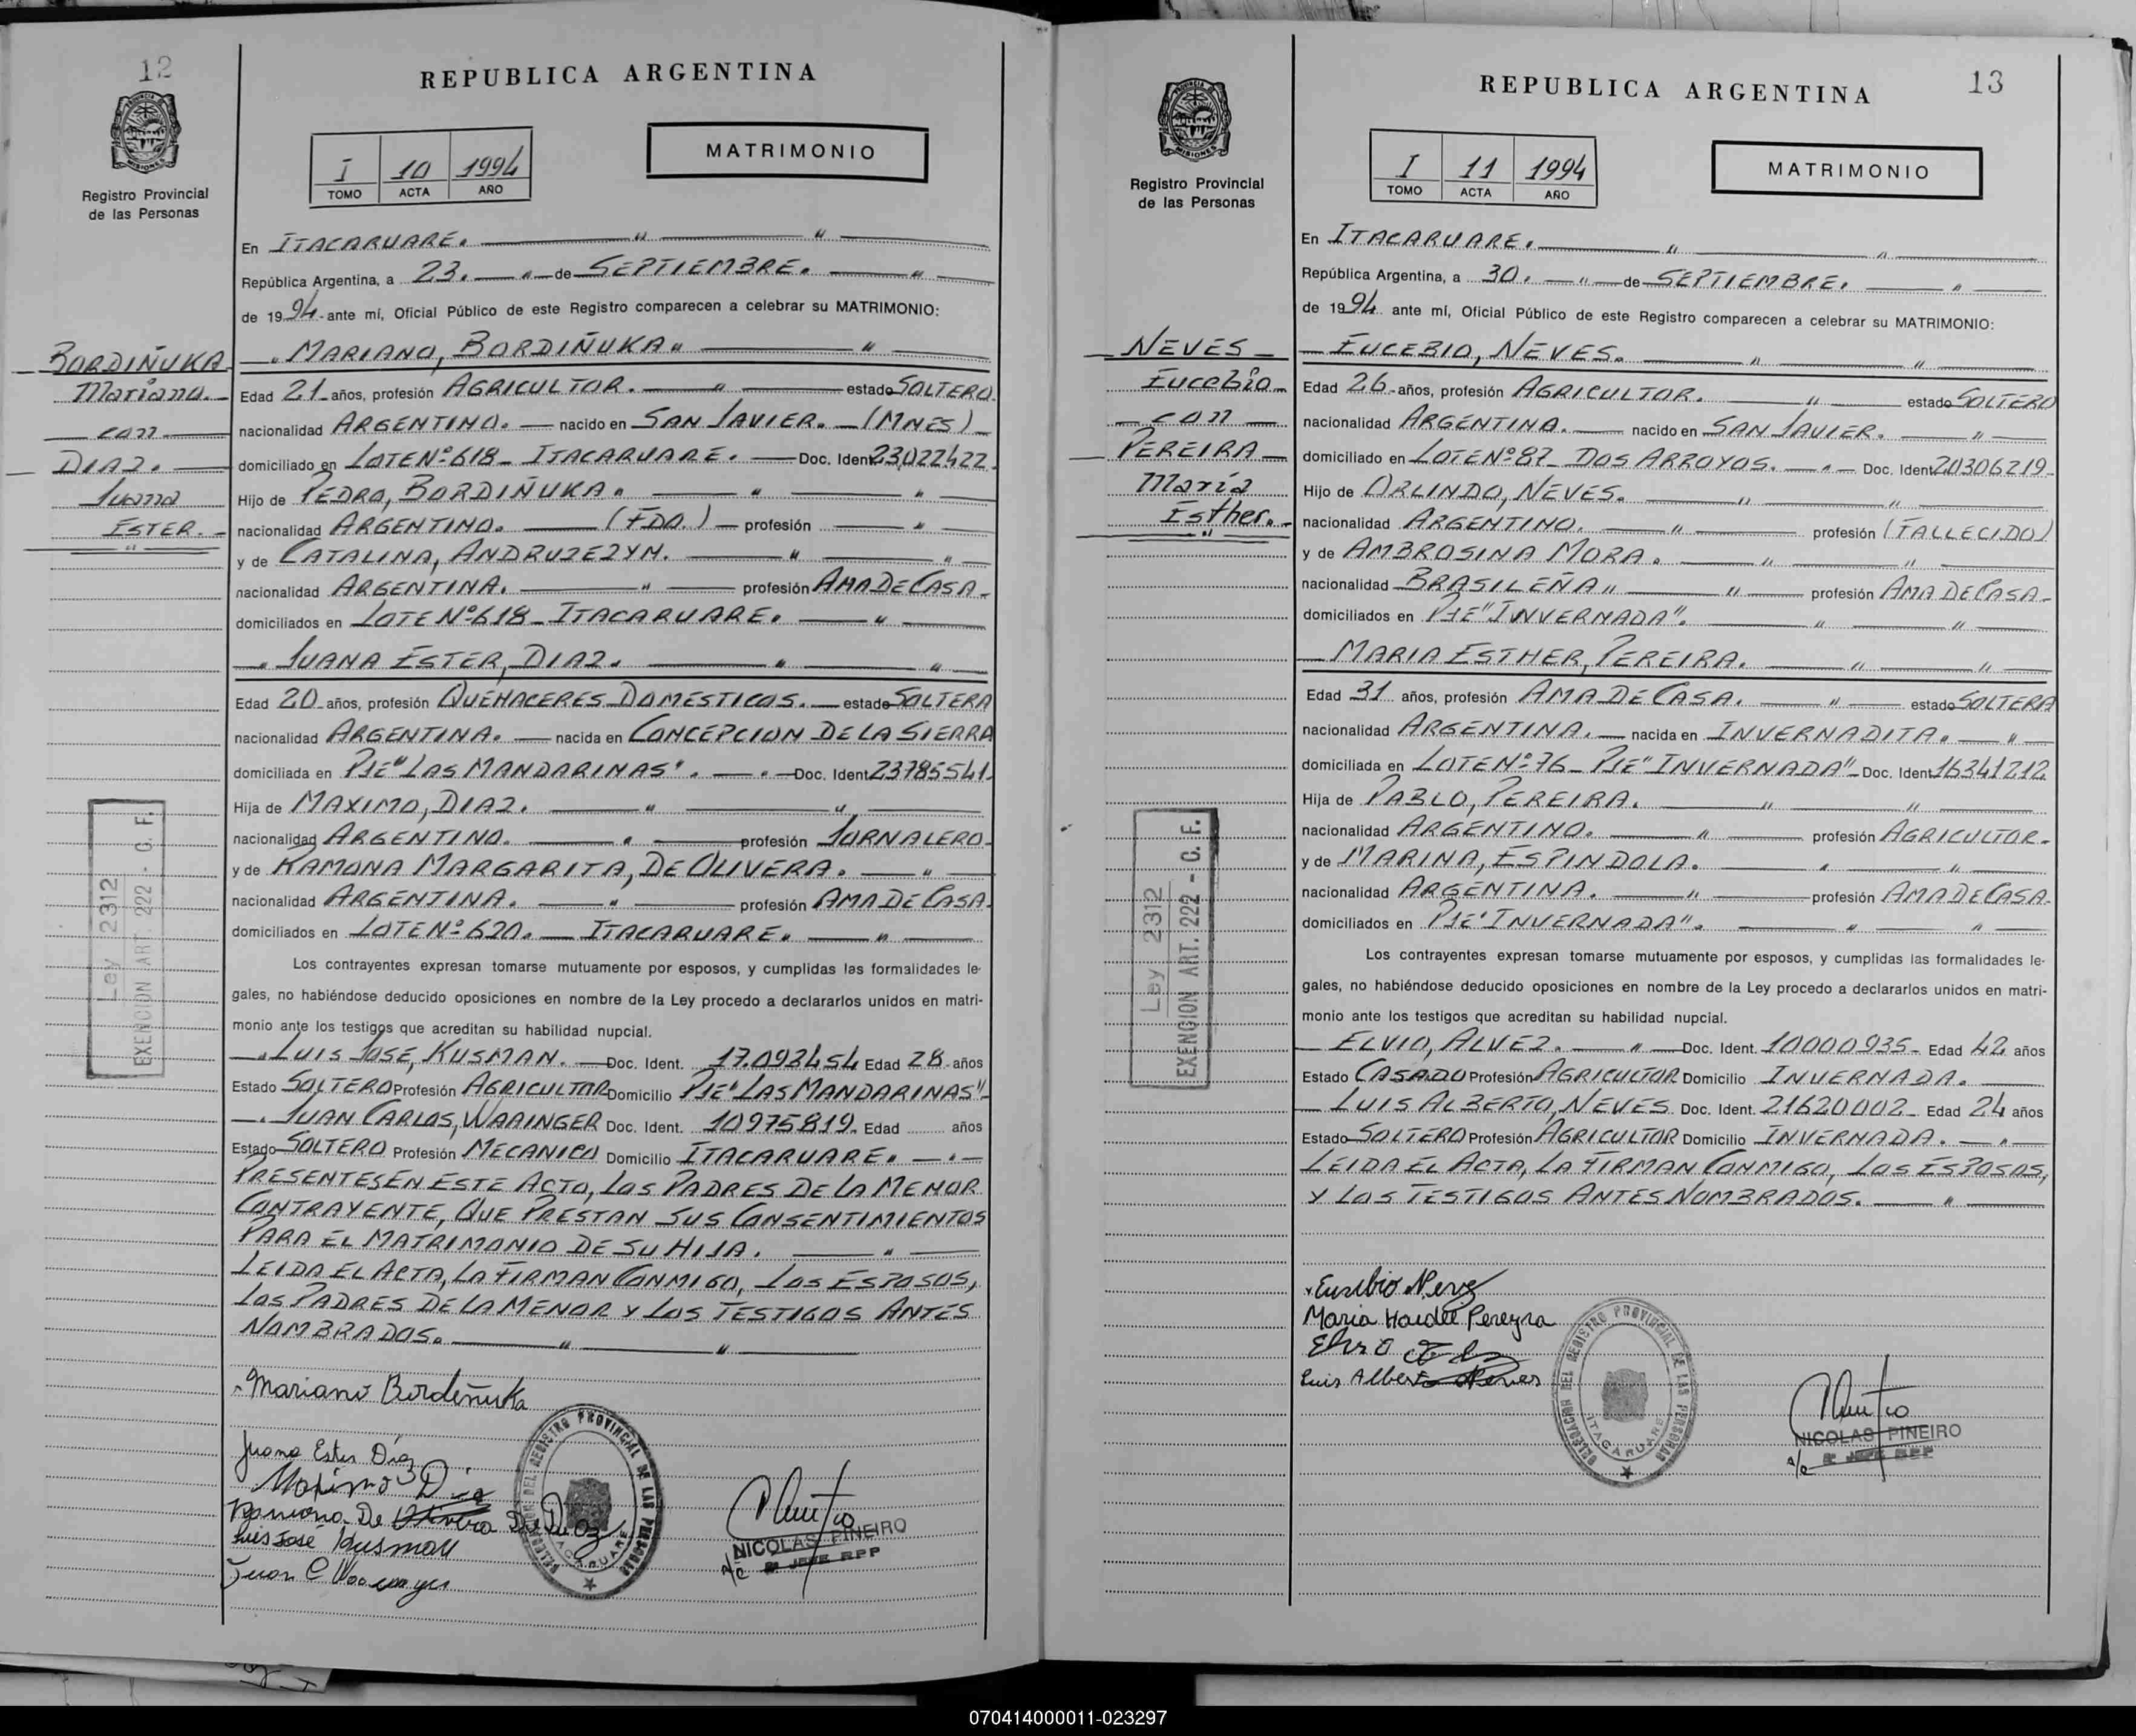 12
REPUBLICA ARGENTINA
PROVINCIA DE MISIONES
Registro Provincial
de las Personas
I 10 1994
TOMO ACTA AÑO
MATRIMONIO
BORDIÑUKA
Mariano.
con
DIAZ.
Juana
ESTER.
Ley 2312
EXENCION ART. 222 - C. F.
En ITACARUARE.
República Argentina, a 23. de SEPTIEMBRE.
de 1994 ante mí, Oficial Público de este Registro comparecen a celebrar su MATRIMONIO:
MARIANO, BORDIÑUKA
Edad 21 años, profesión AGRICULTOR. estado SOLTERO
nacionalidad ARGENTINO. nacido en SAN JAVIER. (MNES)
domiciliado en LOTE Nº 618 ITACARUARE. Doc. Ident 23,022422
Hijo de PEDRO, BORDIÑUKA
nacionalidad ARGENTINO. (FDO.) profesión
y de CATALINA, ANDRUZEZYM.
nacionalidad ARGENTINA. profesión AMA DE CASA
domiciliados en LOTE Nº 618 ITACARUARE.
JUANA ESTER, DIAZ.
Edad 20 años, profesión QUEHACERES DOMESTICOS. estado SOLTERA
nacionalidad ARGENTINA. nacida en CONCEPCION DE LA SIERRA
domiciliada en PJE "LAS MANDARINAS". Doc. Ident 23785541.
Hija de MAXIMO, DIAZ.
nacionalidad ARGENTINO. profesión JORNALERO
y de RAMONA MARGARITA, DE OLIVERA.
nacionalidad ARGENTINA. profesión AMA DE CASA.
domiciliados en LOTE Nº 620. ITACARUARE.
Los contrayentes expresan tomarse mutuamente por esposos, y cumplidas las formalidades le-
gales, no habiéndose deducido oposiciones en nombre de la Ley procedo a declararlos unidos en matri-
monio ante los testigos que acreditan su habilidad nupcial.
LUIS JOSE, KUSMAN. Doc. Ident. 17.093454 Edad 28. años
Estado SOLTERO Profesión AGRICULTOR Domicilio PJE "LAS MANDARINAS"
JUAN CARLOS, WARINGER Doc. Ident. 10975819. Edad años
Estado SOLTERO Profesión MECANICO Domicilio ITACARUARE.
PRESENTES EN ESTE ACTO, LOS PADRES DE LA MENOR
CONTRAYENTE, QUE PRESTAN SUS CONSENTIMIENTOS
PARA EL MATRIMONIO DE SU HIJA.
LEIDA EL ACTA, LA FIRMAN CONMIGO, LOS ESPOSOS,
LOS PADRES DE LA MENOR Y LOS TESTIGOS ANTES
NOMBRADOS.
Mariano Bordeñuka
Juana Ester Díaz
Maximo Diaz
Ramona De Olivera De Diaz
Luis José Kusman
Juan C
DELEGACION DEL REGISTRO PROVINCIAL DE LAS PERSONAS
ITACARUARE
NICOLAS PINEIRO
a/c JEFE RPP
13
REPUBLICA ARGENTINA
PROVINCIA DE MISIONES
Registro Provincial
de las Personas
I 11 1994
TOMO ACTA AÑO
MATRIMONIO
NEVES
Eucebio
con
PEREIRA
María
Esther.
Ley 2312
EXENCION ART. 222 - C. F.
En ITACARUARE.
República Argentina, a 30. de SEPTIEMBRE.
de 1994 ante mí, Oficial Público de este Registro comparecen a celebrar su MATRIMONIO:
EUCEBIO, NEVES.
Edad 26 años, profesión AGRICULTOR. estado SOLTERO
nacionalidad ARGENTINA. nacido en SAN JAVIER.
domiciliado en LOTE Nº 87 DOS ARROYOS. Doc. Ident 20306219
Hijo de ORLINDO, NEVES.
nacionalidad ARGENTINO. profesión (FALLECIDO)
y de AMBROSINA MORA.
nacionalidad BRASILEÑA profesión AMA DE CASA
domiciliados en PJE "INVERNADA".
MARIA ESTHER, PEREIRA.
Edad 31 años, profesión AMA DE CASA. estado SOLTERA
nacionalidad ARGENTINA. nacida en INVERNADITA.
domiciliada en LOTE Nº 76 PJE "INVERNADA" Doc. Ident 16341212
Hija de PABLO, PEREIRA.
nacionalidad ARGENTINO. profesión AGRICULTOR
y de MARINA, ESPINDOLA.
nacionalidad ARGENTINA. profesión AMA DE CASA
domiciliados en PJE "INVERNADA".
Los contrayentes expresan tomarse mutuamente por esposos, y cumplidas las formalidades le-
gales, no habiéndose deducido oposiciones en nombre de la Ley procedo a declararlos unidos en matri-
monio ante los testigos que acreditan su habilidad nupcial.
ELVIO, ALVEZ. Doc. Ident. 10000935 Edad 42 años
Estado CASADO Profesión AGRICULTOR Domicilio INVERNADA.
LUIS ALBERTO, NEVES Doc. Ident. 21620002 Edad 24 años
Estado SOLTERO Profesión AGRICULTOR Domicilio INVERNADA.
LEIDA EL ACTA, LA FIRMAN CONMIGO, LOS ESPOSOS,
Y LOS TESTIGOS ANTES NOMBRADOS.
Eusebio Nevez
Maria Haidée Pereyra
Elvio
Luis Alberto Neves
DELEGACION DEL REGISTRO PROVINCIAL DE LAS PERSONAS
ITACARUARE
NICOLAS PINEIRO
a/c JEFE RPP
070414000011-023297